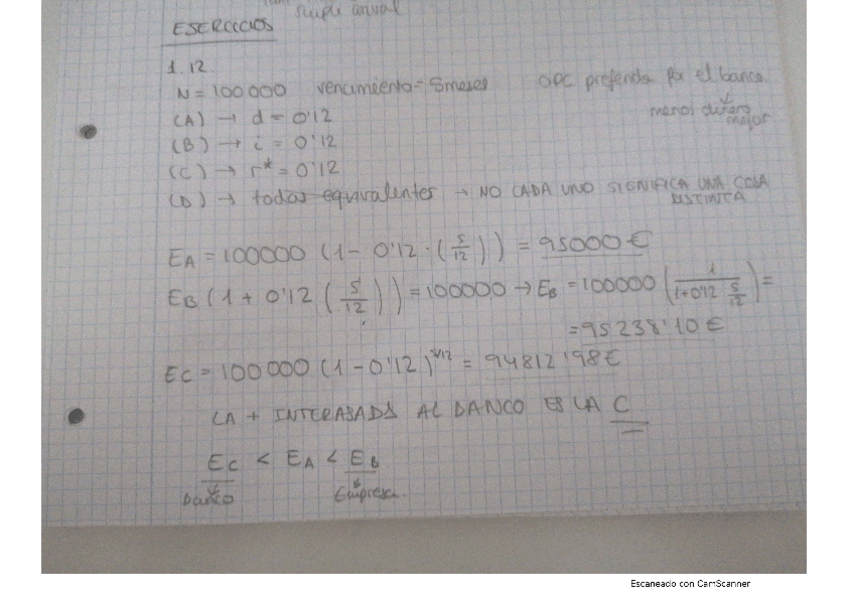 simple anual
EJERCICIOS
1.12.
N = 100000 vencimiento = 5meses OPC preferida por el banco
menos dinero
mejor
(A) → d = 0'12
(B) → i = 0'12
(C) → r* = 0'12
(D) → todas equivalentes → NO CADA UNO SIGNIFICA UNA COSA
DISTINTA
EA = 100000 (1 - 0'12 · (5/12)) = 95000 €
EB (1 + 0'12 (5/12)) = 100000 → EB = 100000 (1/(1+0'12 5/12)) =
= 95238'10 €
EC = 100000 (1 - 0'12)^5/12 = 94812'98€
LA + INTERASADA AL BANCO ES LA C
EC < EA < EB
banco Empresa.
Escaneado con CamScanner